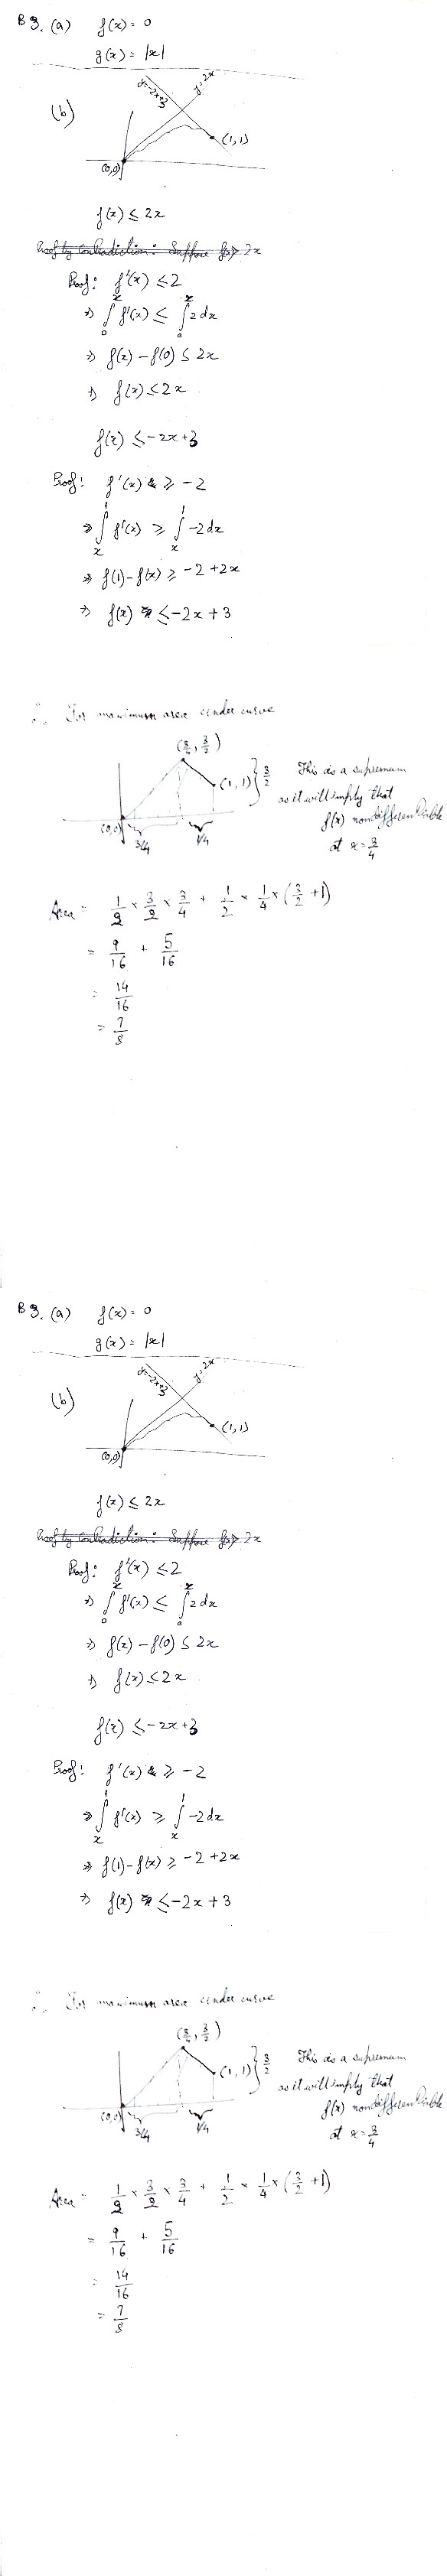 B 3. (a) f(x) = 0
g(x) = |x|
(b)
y=-2x+3
y=2x
(1,1)
(0,0)
f(x) ≤ 2x
Proof by contradiction: Suppose f(x)>2x
Proof: f'(x) ≤ 2
⇒ ∫₀ˣ f'(x) ≤ ∫₀ˣ 2dx
⇒ f(x) - f(0) ≤ 2x
⇒ f(x) ≤ 2x
f(x) ≤ -2x+3
Proof: f'(x) ≥ -2
⇒ ∫ₓ¹ f'(x) ≥ ∫ₓ¹ -2dx
⇒ f(1) - f(x) ≥ -2+2x
⇒ f(x) ≤ -2x+3
∴ For maximum area under curve
(3/4, 3/2)
(1,1) } 3/2
(0,0)
3/4
1/4
This is a supremum
as it will imply that
f(x) nondifferentiable
at x = 3/4
Area = 1/2 × 3/2 × 3/4 + 1/2 × 1/4 × (3/2 + 1)
= 9/16 + 5/16
= 14/16
= 7/8
B 3. (a) f(x) = 0
g(x) = |x|
(b)
y=-2x+3
y=2x
(1,1)
(0,0)
f(x) ≤ 2x
Proof by contradiction: Suppose f(x)>2x
Proof: f'(x) ≤ 2
⇒ ∫₀ˣ f'(x) ≤ ∫₀ˣ 2dx
⇒ f(x) - f(0) ≤ 2x
⇒ f(x) ≤ 2x
f(x) ≤ -2x+3
Proof: f'(x) ≥ -2
⇒ ∫ₓ¹ f'(x) ≥ ∫ₓ¹ -2dx
⇒ f(1) - f(x) ≥ -2+2x
⇒ f(x) ≤ -2x+3
∴ For maximum area under curve
(3/4, 3/2)
(1,1) } 3/2
(0,0)
3/4
1/4
This is a supremum
as it will imply that
f(x) nondifferentiable
at x = 3/4
Area = 1/2 × 3/2 × 3/4 + 1/2 × 1/4 × (3/2 + 1)
= 9/16 + 5/16
= 14/16
= 7/8